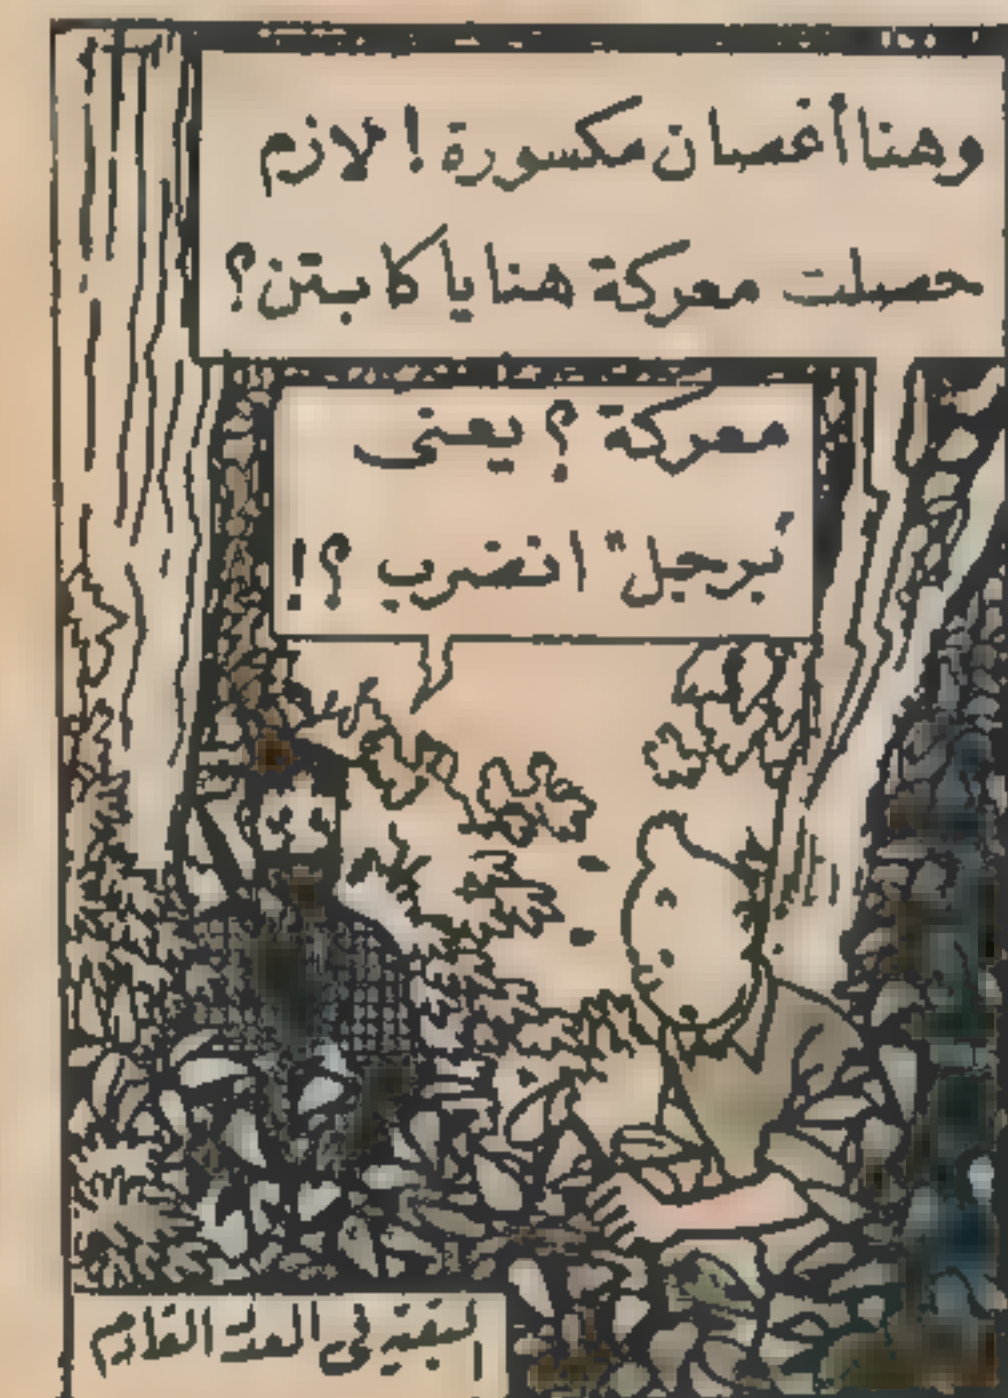 وهنا أغصان مكسورة ! لازم
حصلت معركة هنا يا كابتن ؟
معركة ؟ يعنى
"برجل" انضرب ؟!
البقية فى العدد القادم